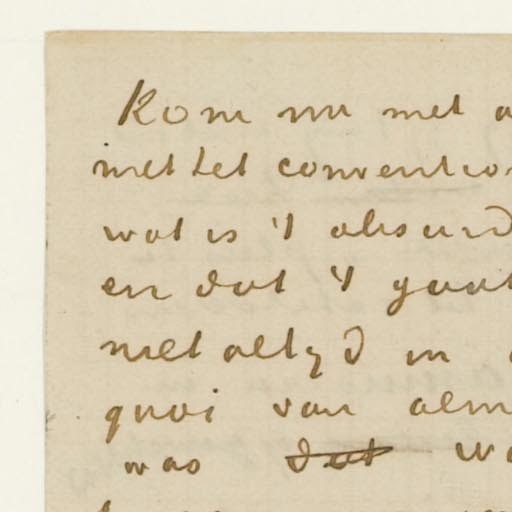 Kom nu met a
met het convention
wat is 't absurd
en dat 't gaat
niet altyd in
quoi van alm
was dat wa